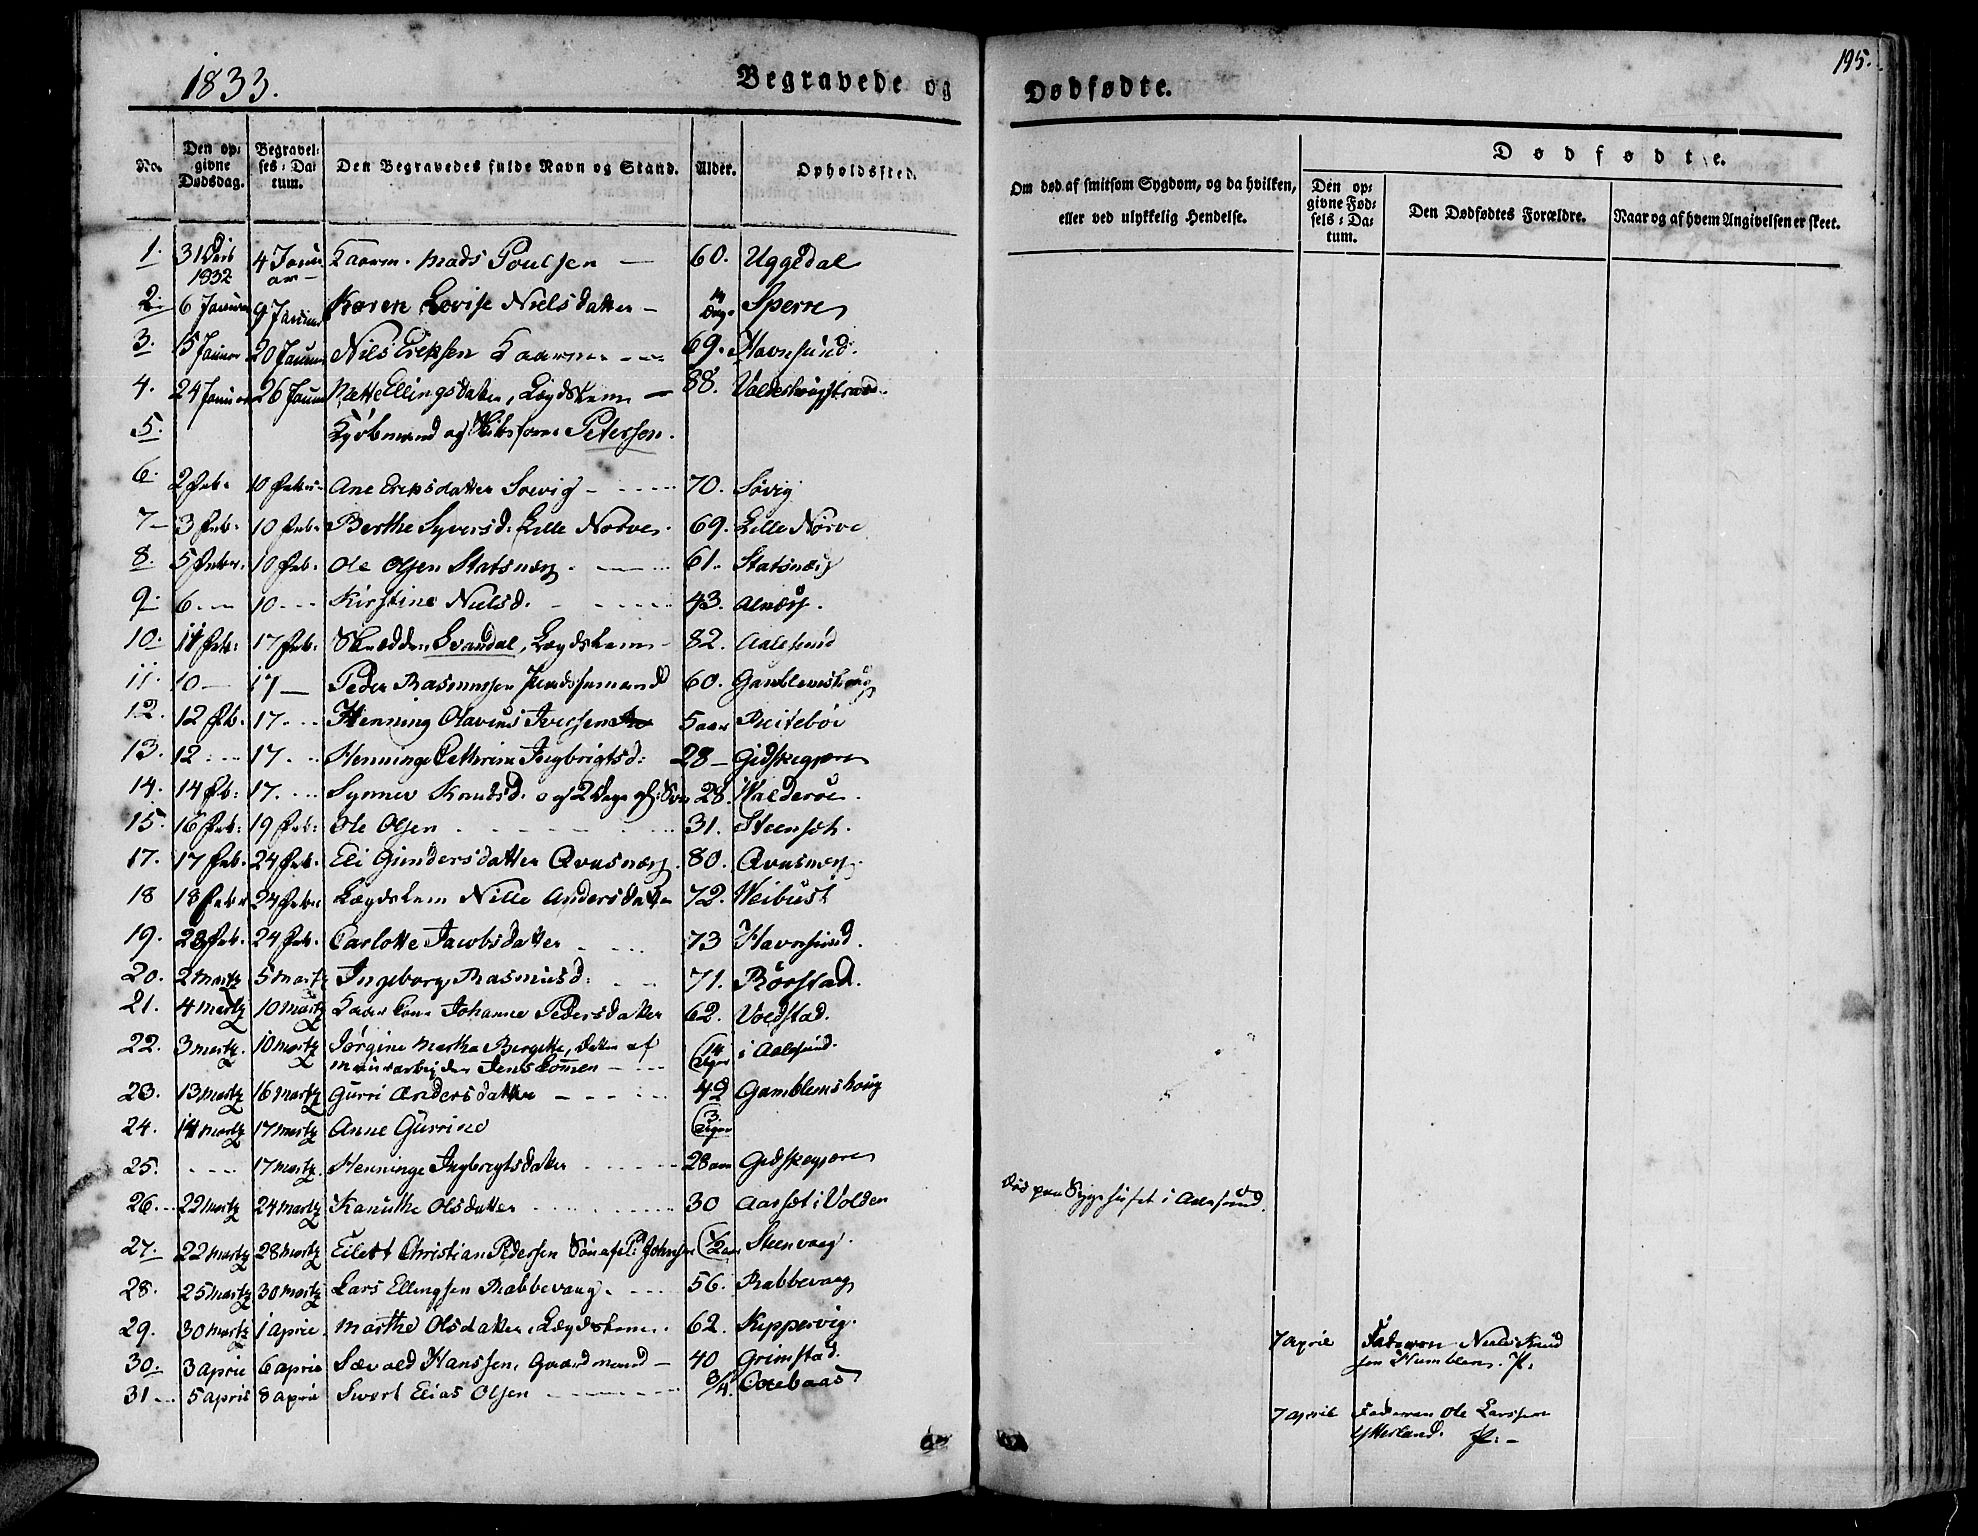 1833.
Begravede og
Dødfødte.
195.
No.
Den opgivne Dødsdag.
Begravelses-Datum.
Den Begravedes fulde Navn og Stand.
Alder.
Opholdssted.
Om død af smitsom Sygdom, og da hvilken, eller ved ulykkelig Hendelse.
Dødfødte.
Den opgivne Fødsels-Datum.
Den Dødfødtes Forældre.
Naar og af hvem Angivelsen er skeet.
1. 31 Decb 1832 4 Januar Mads Poulsen 60. Uggedal
2. 6 Januar 9 Januar Karen Lovise Nielsdatter 14 Dage Sperre
3. 15 Januar 20 Januar Nils Erichsen 69. Havnsund.
4. 24 Januar 26 Januar Ellingsdatter, Lægdslem 88.
5. Kjøbmand og Petersen.
6. 2 Feb. 10 Feb. Ane Erichsdatter Soevig 70. Søvig
7 3 Feb. 10 Feb. Berthe Syversd. Lille Nørve 69. Lille Nørve
8. 5 Feb. 10 Feb. Ole Olsen Statsnæs 61. Statsnæs
9. 6 10 Kirstine Nielsd. 43. Alnæss.
10. 11 Feb. 17 Feb. Skrædder Svendal, Lægdslem 82. Aalesund
11. 10 17 Peder Rasmussen Huusmand 60. Gamblemshoug
12. 12 Feb. 17. Henning Olavius Iversen 5 aar Reitebøe
13. 12 17. Henninge Cathrine Ingbrigtsd: 28 Gidskegjære
14. 14 Feb: 17. Synnev Knudsd. 28. Walderøe.
15. 16 Feb: 19 Feb: Ole Olsen 31. Steensæt.
17. 17 Feb. 24 Feb. Eli Gundersdatter Qvasnæs 80. Qvasnæs.
18 18 Febr 24 Febr Lægdslem Nille Andersdatter 72. Weibust
19. 23 Feb. 24 Feb. Carlotte Jacobsdatter 73 Havnsund.
20. 2 Martz 5 Martz Ingeborg Rasmusd: 71. Rörstad.
21. 4 Martz 10 Martz Johanne Pedersdatter 62. Voldstad.
22. 3 Martz. 10 Martz Jørgine Martha Bergitte, datter af
Muurarbejder Jens 14 Dage i Aalesund.
23. 13 Martz 16 Martz Gurri Andersdatter 42 Gamblemshoug
24. 14 Martz 17 Martz Anne Gurrine 3 Dage
25. 17 Martz. Henninge Ingbrigtsdatter 28 aar Gidskegjære
26. 22 Martz 24 Martz Kanuthe Olsdatter 30 Aarset i Volden Død paa Sygehuset i Aalesund.
27. 22 Martz 28 Martz Eilert Christian Pedersen Søn af P. Johnsen 1/2 aar Steenvaag.
28. 25 Martz 30 Martz Lars Ellingsen Rabbevaag. 56. Rabbevaag
29. 30 Martz 1 April. Marthe Olsdatter, Lægdslem. 62. Kippervig.
30. 3 April 6 April Sævald Hanssen, Gaardmand 40 Grimstad.
31 5 April 8 April Sivert Elias Olsen 3/4.
7 April Faderen Niels Knudsen Humblen.
7 April Faderen Ole Larssen Ytterland.